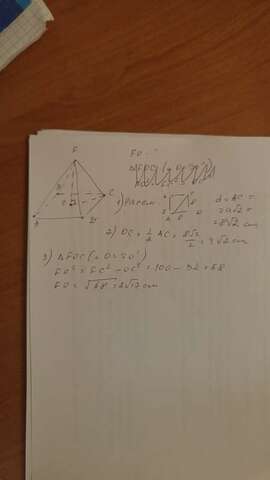 F
FO - ?
B
C
O
A
D
1) Рассм.
d = AC =
= a√2 =
= 8√2 cm
2) OC = 1/2 AC = 8√2/2 = 4√2 cm
3) ΔFOC (∠O = 90°)
FO² = FC² - OC² = 100 - 32 = 68
FO = √68 = 2√17 cm